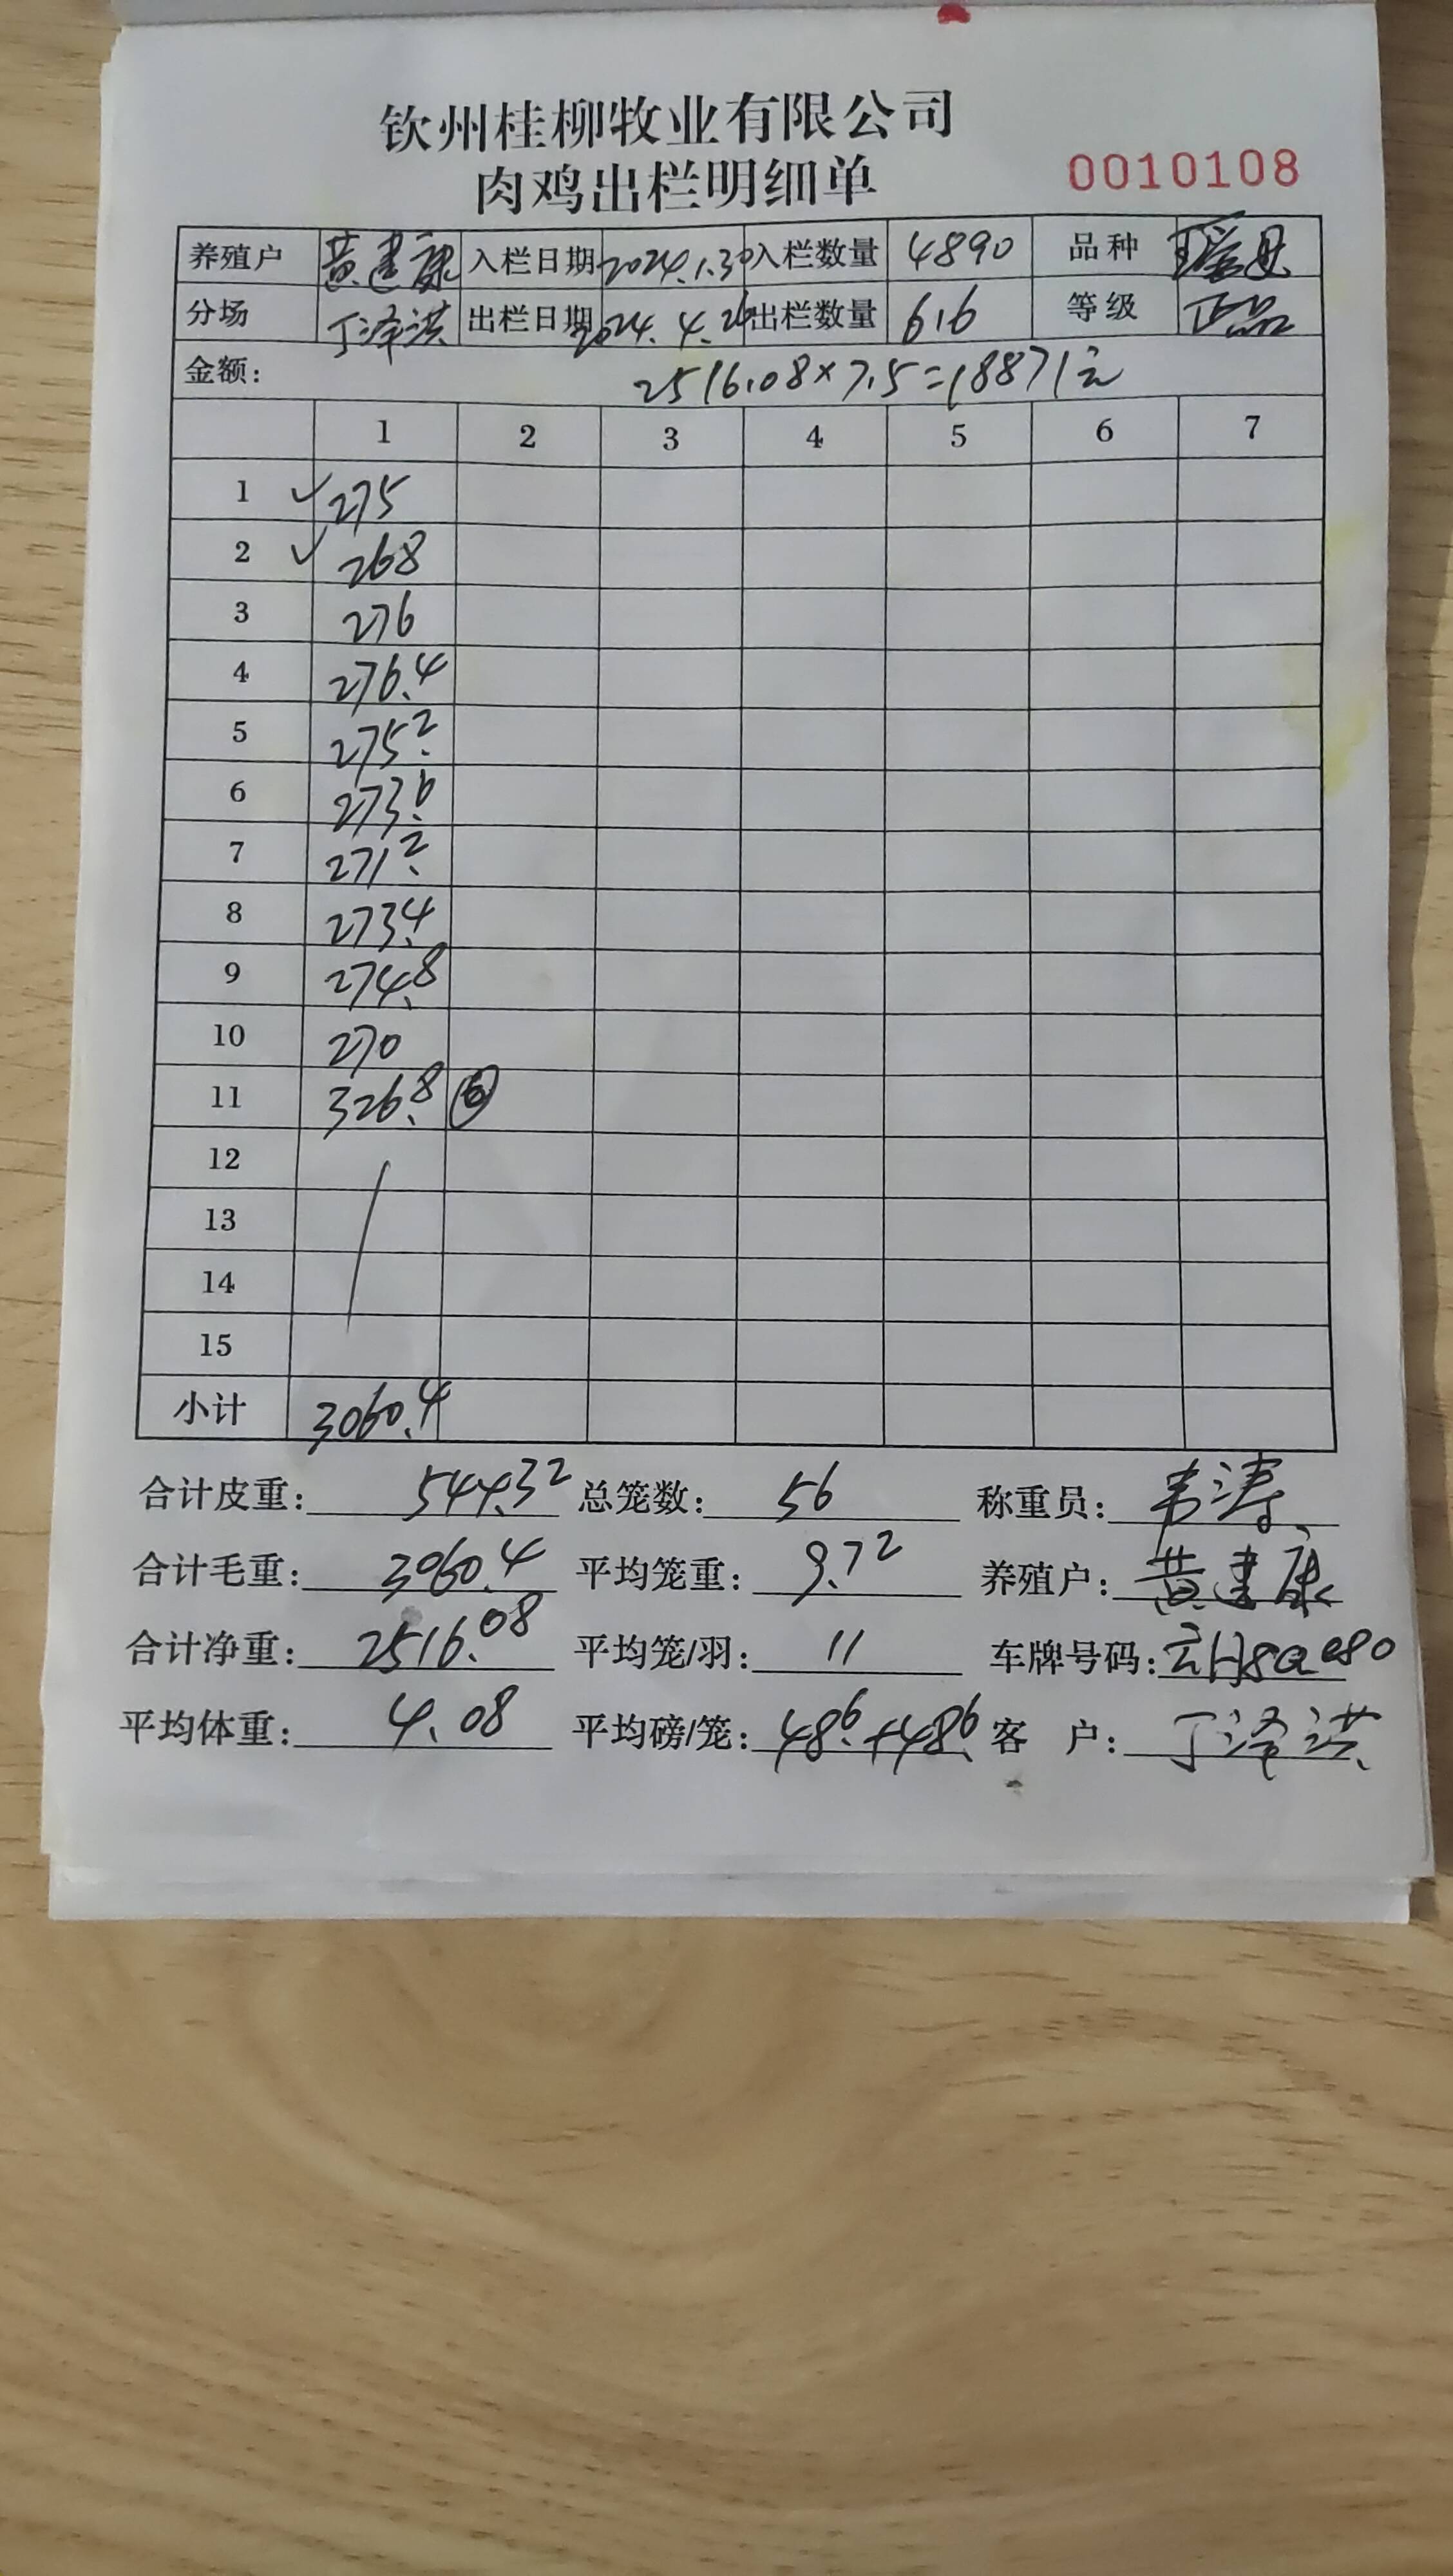 钦州桂柳牧业有限公司
肉鸡出栏明细单 0010108
养殖户 黄建康 入栏日期 2024.1.30 入栏数量 4890 品种
分场 丁泽洪 出栏日期 2024.4.26 出栏数量 616 等级 正品
金额: 2516.08×7.5=18871元
1 2 3 4 5 6 7
1 ✓ 275
2 ✓ 268
3 276
4 276.4
5 275.2
6 273.6
7 271.2
8 273.4
9 274.8
10 270
11 326.8 ⑥
12
13
14
15
小计 3060.4
合计皮重: 544.32 总笼数: 56 称重员: 韦涛
合计毛重: 3060.4 平均笼重: 9.72 养殖户: 黄建康
合计净重: 2516.08 平均笼/羽: 11 车牌号码:
平均体重: 4.08 平均磅/笼: 48.6+48.6 客 户: 丁泽洪